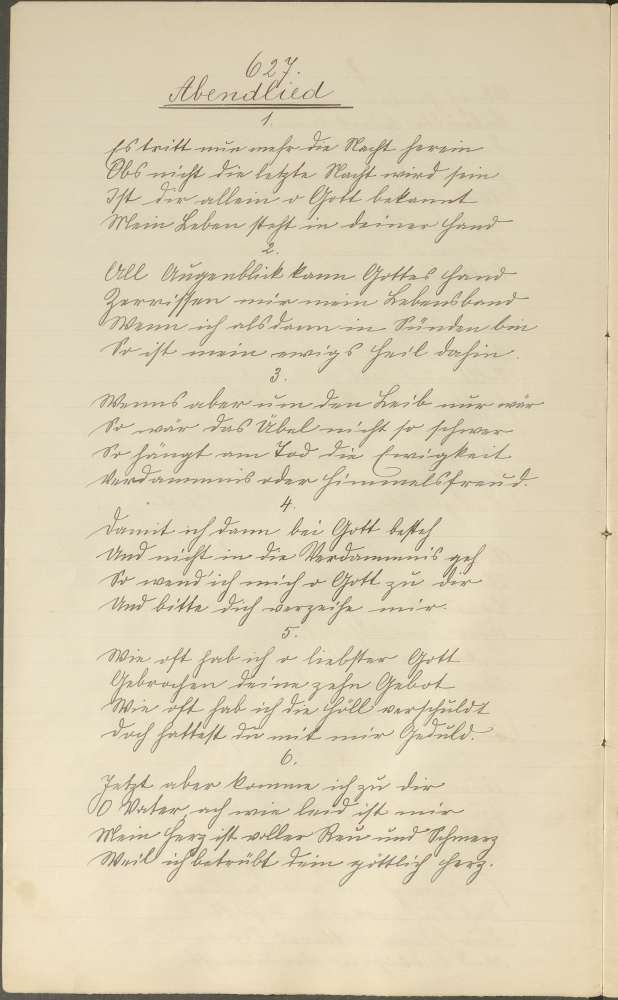 627.
Abendlied
1.
Es tritt nun mehr die Nacht herein
Obs nicht die letzte Nacht wird sein
Ist dir allein o Gott bekannt
Mein Leben steht in deiner Hand
2.
All Augenblick kann Gottes Hand
Zerrissen mir mein Lebensband
Wenn ich alsdann in Sünden bin
So ist mein ewigs Heil dahin.
3.
Wenns aber um den Leib nur wär
So wär das Übel nicht so schwer
So hängt am Tod die Ewigkeit
Verdammnis oder Himmelsfreud.
4.
Damit ich dann bei Gott besteh
Und nicht in die Verdammnis geh
So wend' ich mich o Gott zu dir
Und bitte dich verzeihe mir.
5.
Wie oft hab ich o liebster Gott
Gebrochen deine zehn Gebot
Wie oft hab ich die Höll verschuldt
Doch hattest du mit mir Geduld.
6.
Jetzt aber komme ich zu dir
O Vater, ach wie leid ist mir
Mein Herz ist voller Reu und Schmerz
Weil ich betrübt dein göttlich Herz.